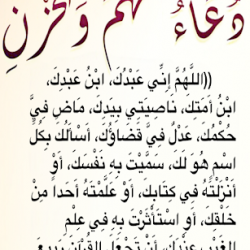 دُعَاءُ الهَمِّ وَالحُزْنِ
((اللَّهُمَّ إِنِّي عَبْدُكَ، ابْنُ عَبْدِكَ،
ابْنُ أَمَتِكَ، نَاصِيَتِي بِيَدِكَ، مَاضٍ فِيَّ
حُكْمُكَ، عَدْلٌ فِيَّ قَضَاؤُكَ، أَسْأَلُكَ بِكُلِّ
اسْمٍ هُوَ لَكَ، سَمَّيْتَ بِهِ نَفْسَكَ، أَوْ
أَنْزَلْتَهُ فِي كِتَابِكَ، أَوْ عَلَّمْتَهُ أَحَداً مِنْ
خَلْقِكَ، أَوِ اسْتَأْثَرْتَ بِهِ فِي عِلْمِ
الغَيْبِ عِنْدَكَ، أَنْ تَجْعَلَ القُرْآنَ رَبِيعَ